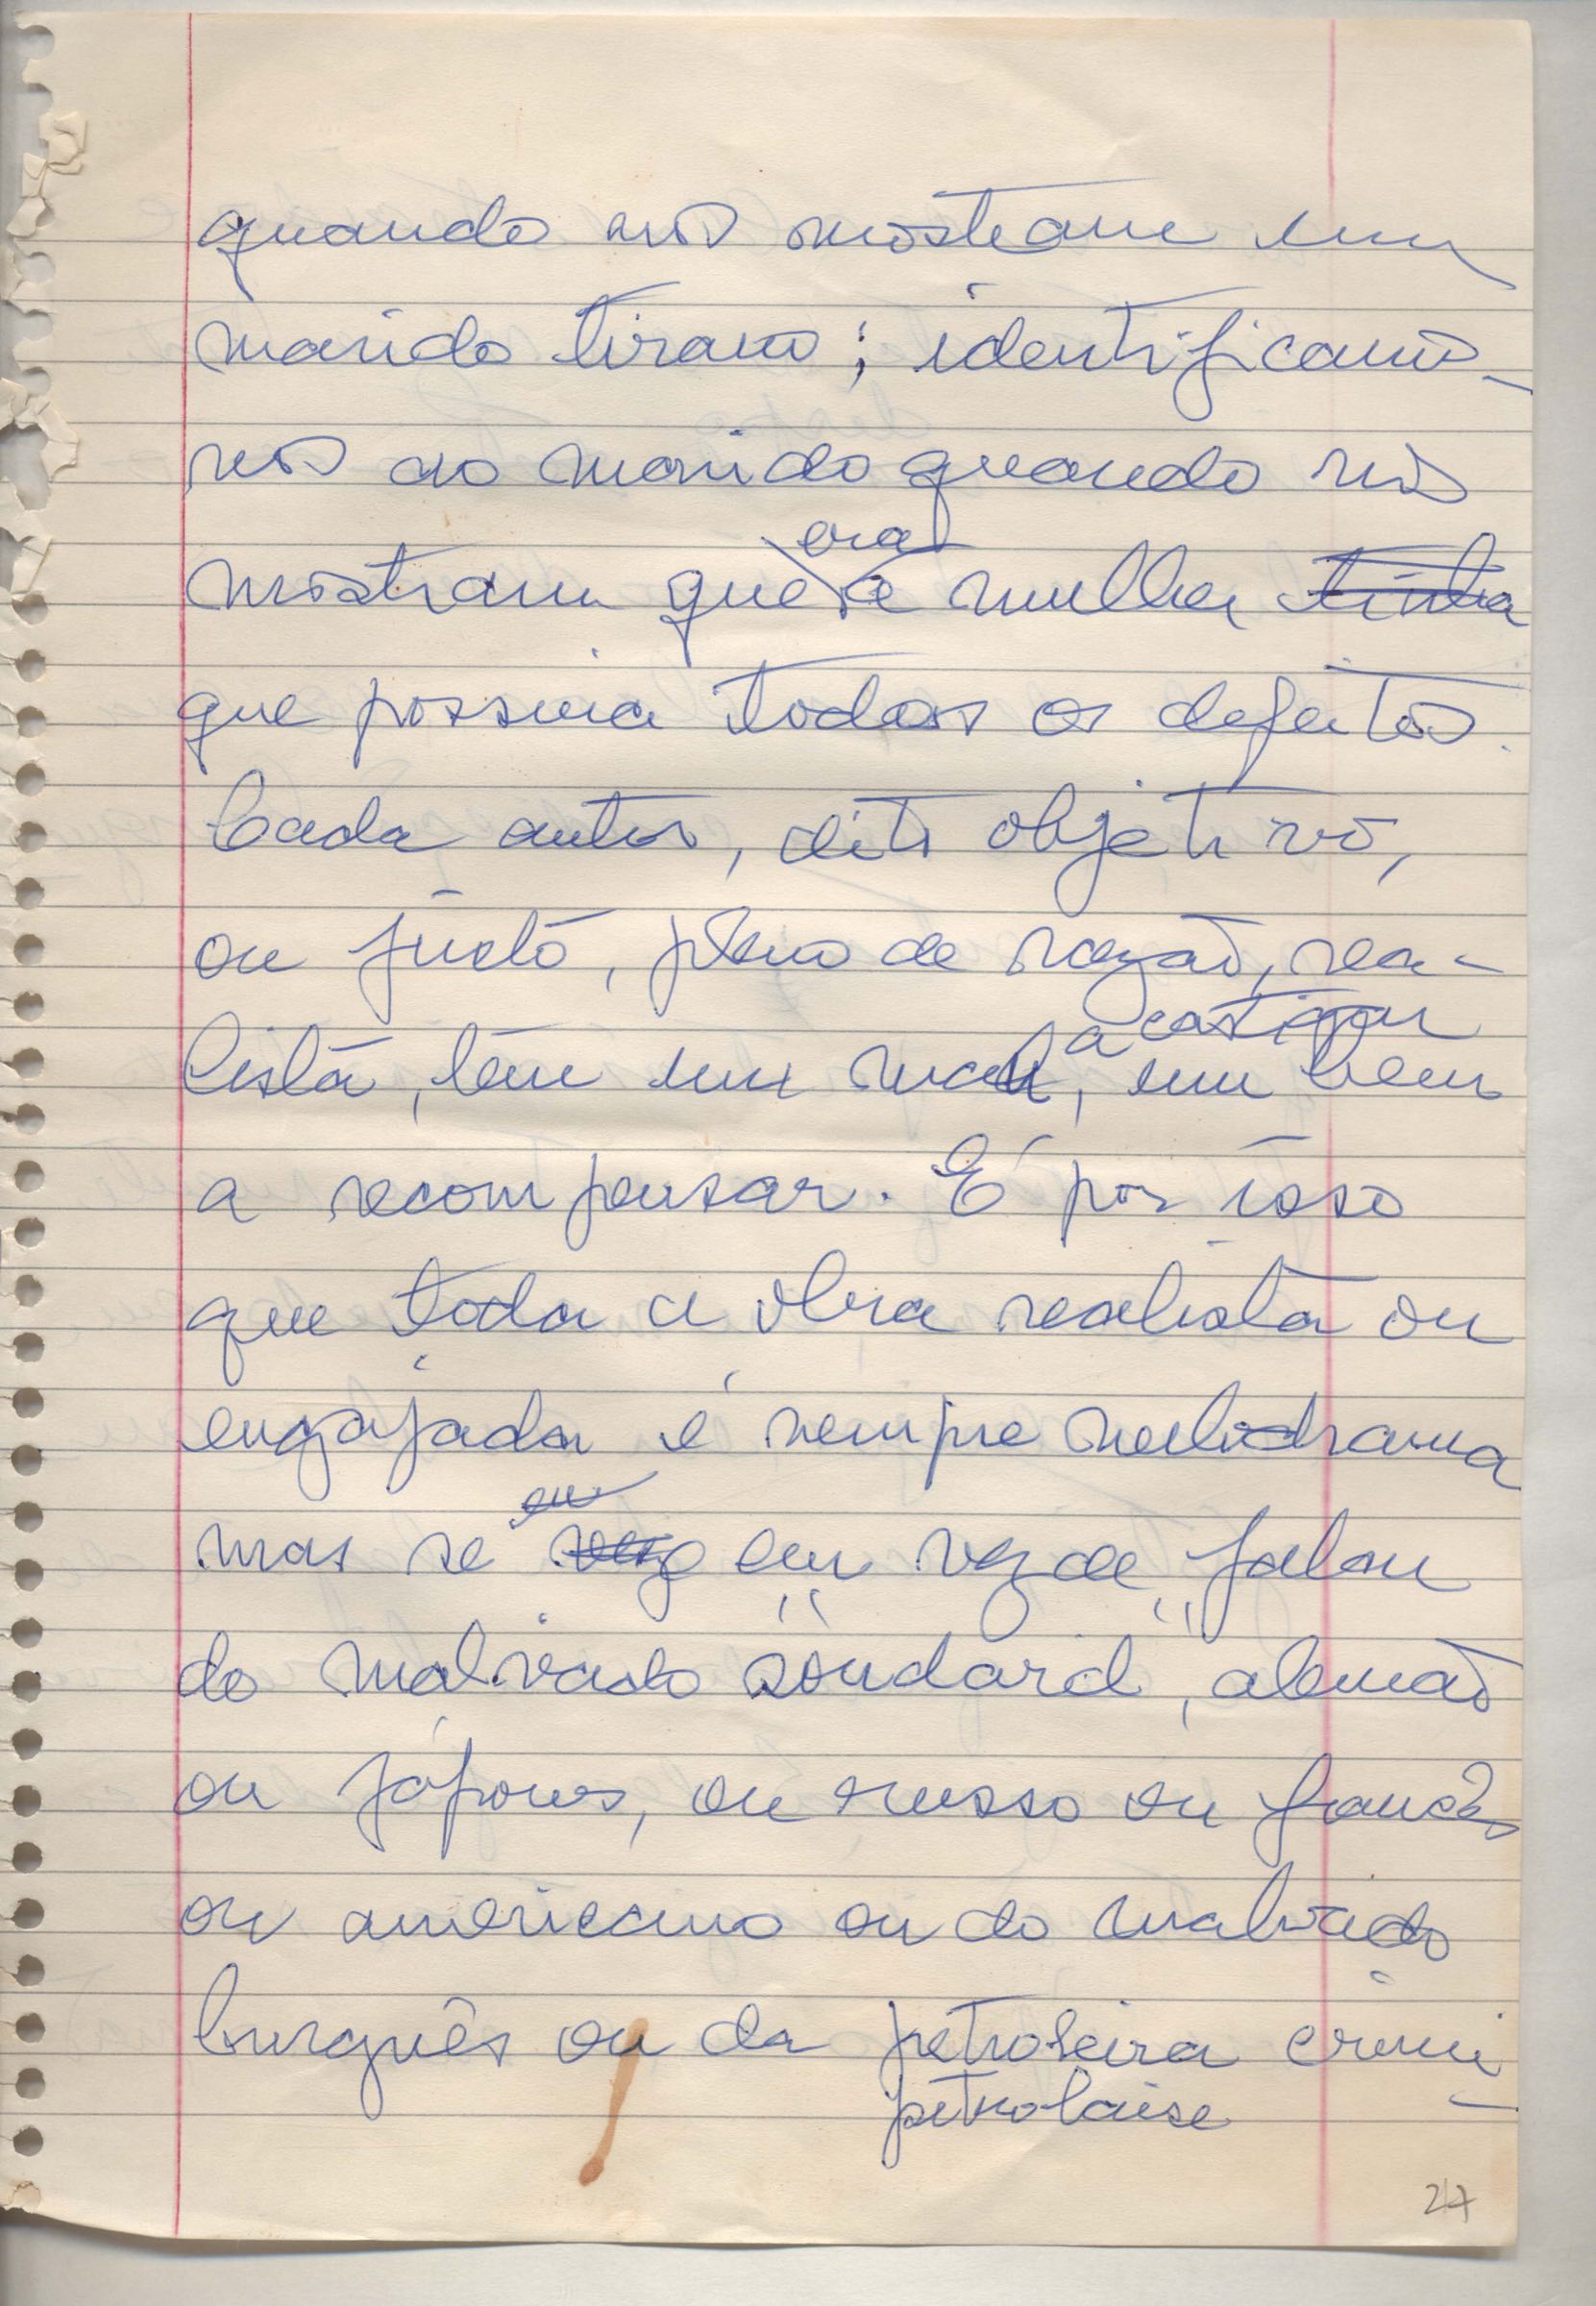 quando nos mostram um
marido tirano; identificamo-
nos ao marido quando nos
mostram que era a mulher tinha
que possuia todos os defeitos.
Cada autor, dito objetivo,
ou justo, pleno de razão, rea-
lista, tem um mal a castigar, um bem
a recompensar. É por isso
que toda a obra realista ou
engajada é sempre melodrama
mas se em vez de falar
do malvado "soudard", alemão
ou japones, ou russo ou francês
ou americano ou do malvado
burguês ou da petroleira crimi-
petrolaise
27